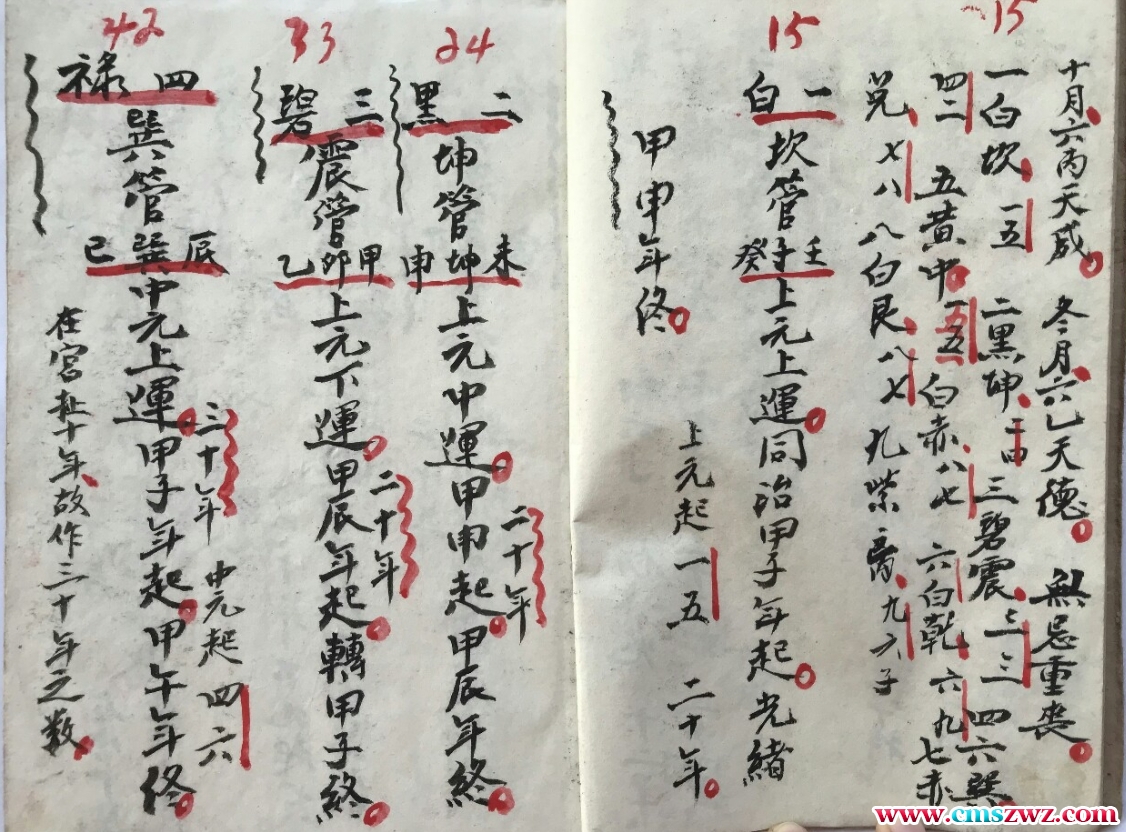 15
十月六丙天成 冬月六己天德 無忌重喪
一白坎 一五 二黑坤 二四 三碧震 三三 四六巽
四二 五黄中 一五 白赤八七 六白乾 六九七赤
兌 七八 八白艮 八七 九紫离 九六子
15
一白坎管壬子癸上元上運同治甲子年起光緒
甲申年終 上元起 一五 二十年
24
二黑坤管未坤申上元中運甲申起甲辰年終
二十年
33
三碧震管甲卯乙上元下運甲辰年起轉甲子終
二十年
42
四禄巽管辰巽巳中元上運甲子年起甲午年終
三十年 中元起 四六
在宮赴十年故作三十年之数
www.cmszwz.com